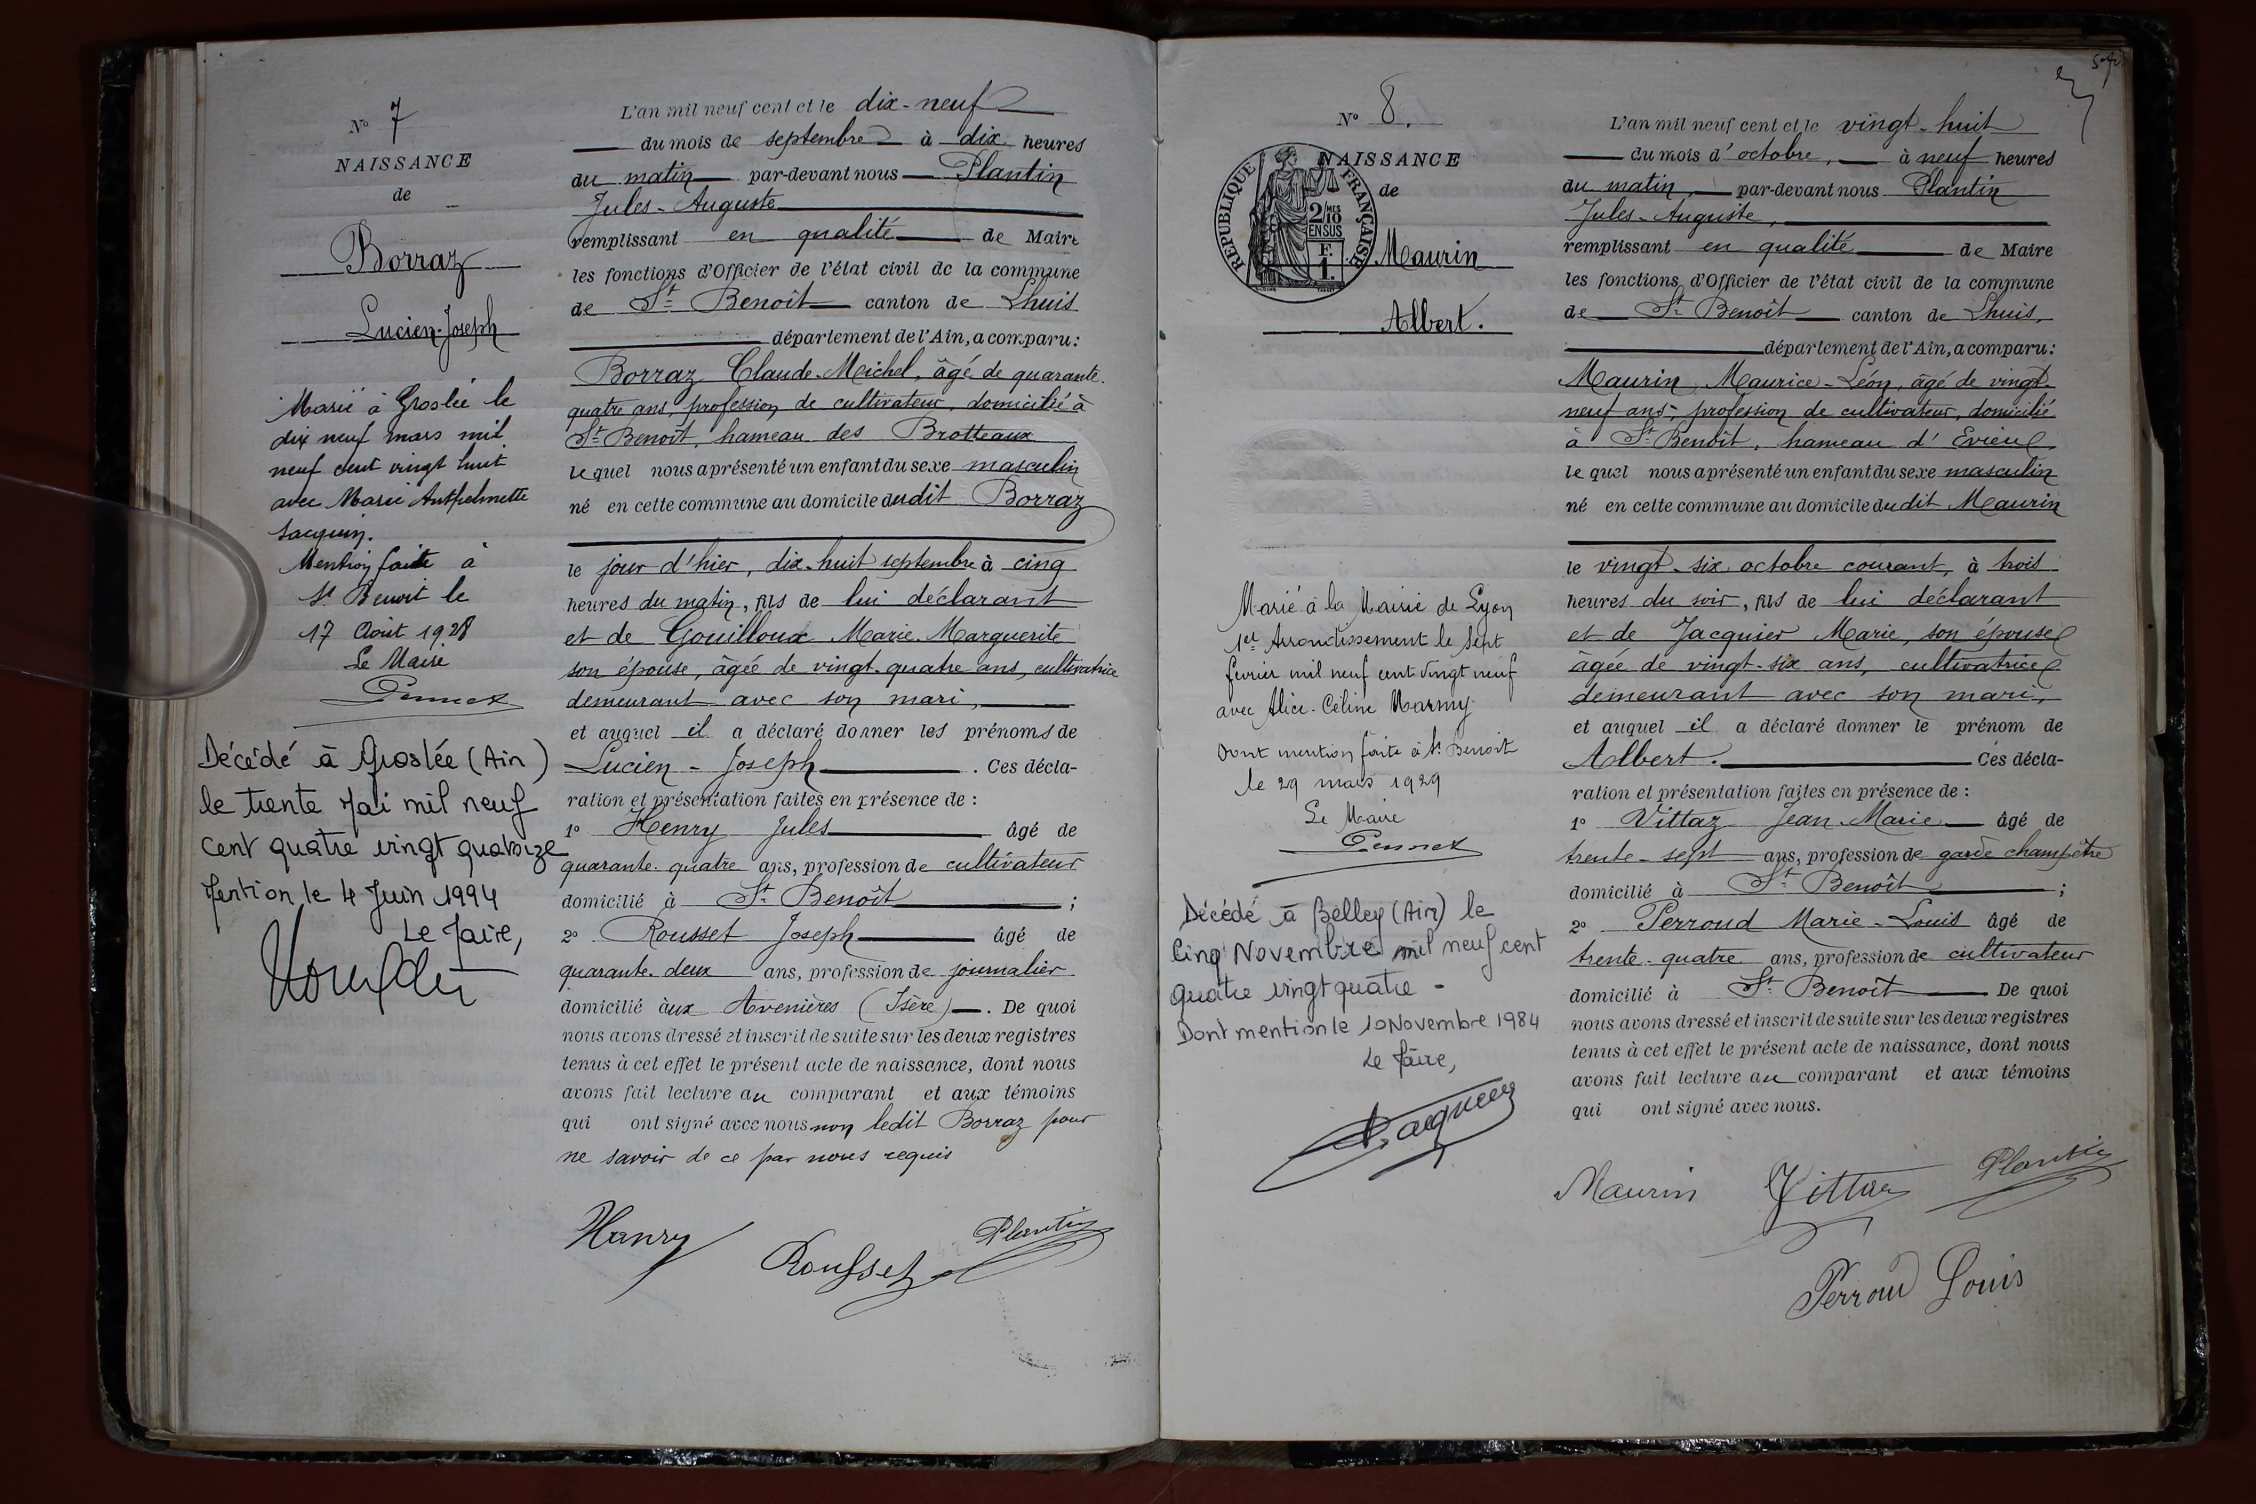 N° 7
NAISSANCE
de
Borraz
Lucien-Joseph
Marié à Groslée le
dix neuf mars mil
neuf cent vingt huit
avec Marie Anthelmette
Jacquin.
Mention faite à
St Benoit le
17 Août 1928
Le Maire
Décédé à Groslée (Ain)
le trente Mai mil neuf
cent quatre vingt quatorze
Mention le 4 Juin 1994
Le Maire,
L'an mil neuf cent et le dix-neuf
du mois de septembre à dix heures
du matin par-devant nous Plantin
Jules-Auguste
remplissant en qualité de Maire
les fonctions d'Officier de l'état civil de la commune
de St Benoît canton de Lhuis
département de l'Ain, a comparu:
Borraz Claude-Meichel, âgé de quarante-
quatre ans, profession de cultivateur, domicilié à
St Benoît, hameau des Brotteaux
le quel nous a présenté un enfant du sexe masculin
né en cette commune au domicile dudit Borraz
le jour d'hier, dix-huit septembre à cinq
heures du matin, fils de lui déclarant
et de Gouilloux Marie-Marguerite
son épouse, âgée de vingt-quatre ans, cultivatrice
demeurant avec son mari,
et auquel il a déclaré donner les prénoms de
Lucien-Joseph. Ces décla-
ration et présentation faites en présence de :
1° Henry Jules âgé de
quarante-quatre ans, profession de cultivateur
domicilié à St Benoît ;
2° Rousset Joseph âgé de
quarante-deux ans, profession de journalier
domicilié àux Avenières (Isère). De quoi
nous avons dressé et inscrit de suite sur les deux registres
tenus à cet effet le présent acte de naissance, dont nous
avons fait lecture au comparant et aux témoins
qui ont signé avec nous non ledit Borraz pour
ne savoir de ce par nous requis
Henry Rousset Plantin
N° 8.
NAISSANCE
de
REPUBLIQUE FRANÇAISE
2/10 MES
EN SUS
F.
1.
Maurin
Albert.
Marié à la Mairie de Lyon
1er Arrondissement le sept
février mil neuf cent vingt neuf
avec Alice-Céline Marmy
Dont mention faite à St Benoit
le 29 mars 1929
Le Maire
Décédé à Belley (Ain) le
Cinq Novembre mil neuf cent
quatre vingt quatre -
Dont mention le 10 Novembre 1984
Le Maire,
L'an mil neuf cent et le vingt-huit
du mois d'octobre, à neuf heures
du matin, par-devant nous Plantin
Jules-Auguste,
remplissant en qualité de Maire
les fonctions d'Officier de l'état civil de la commune
de St Benoît canton de Lhuis,
département de l'Ain, a comparu:
Maurin Maurice-Léon, âgé de vingt-
neuf ans, profession de cultivateur, domicilié
à St Benoît, hameau d'Evieu
le quel nous a présenté un enfant du sexe masculin
né en cette commune au domicile dudit Maurin
le vingt-six octobre courant, à trois
heures du soir, fils de lui déclarant
et de Jacquier Marie, son épouse
âgée de vingt-six ans, cultivatrice
demeurant avec son mari,
et auquel il a déclaré donner le prénom de
Albert. Ces décla-
ration et présentation faites en présence de :
1° Vittaz Jean-Marie âgé de
trente-sept ans, profession de garde champêtre
domicilié à St Benoît ;
2° Perroud Marie-Louis âgé de
trente-quatre ans, profession de cultivateur
domicilié à St Benoît De quoi
nous avons dressé et inscrit de suite sur les deux registres
tenus à cet effet le présent acte de naissance, dont nous
avons fait lecture au comparant et aux témoins
qui ont signé avec nous.
Maurin Vittaz Plantin
Perroud Louis